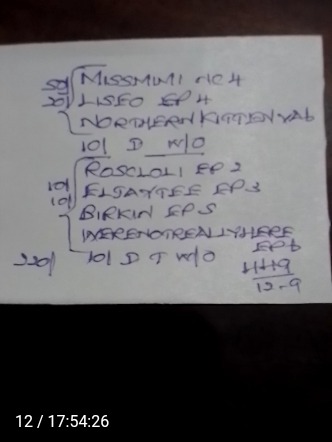 50/ MISSMIMI NC 4
20/ LISEO EP 4
NORTHERN KITTEN YAB
10/ D W/O
10/ ROSCLOLI EP 2
10/ ELSAYTEE EP 3
BIRKIN EP 5
WERENOTREALLYHERE
EP 6
220/ 10/ D T W/O
4449
12-9
12 / 17:54:26